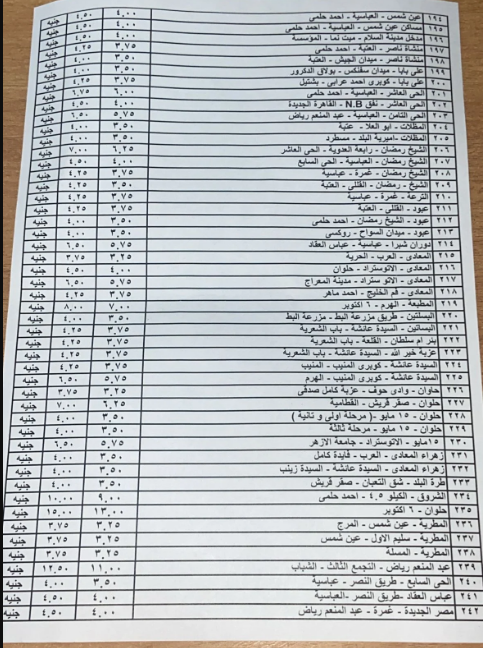 ١٩٤ عين شمس - العباسية - احمد حلمى ٤.٠٠ ٤.٥٠ جنيه
١٩٥ مساكن عين شمس - العباسية - احمد حلمى ٤.٠٠ ٤.٥٠ جنيه
١٩٦ مدخل مدينة السلام - ميت نما - المؤسسة ٣.٥٠ ٤.٠٠ جنيه
١٩٧ منشاة ناصر - العتبة - احمد حلمى ٣.٧٥ ٤.٢٥ جنيه
١٩٨ منشاة ناصر - ميدان الجيش - العتبة ٣.٥٠ ٤.٠٠ جنيه
١٩٩ على بابا - ميدان سفنكس - بولاق الدكرور ٣.٥٠ ٤.٠٠ جنيه
٢٠٠ على بابا - كوبرى احمد عرابى - بشتيل ٣.٧٥ ٤.٢٥ جنيه
٢٠١ الحى العاشر - العباسية - احمد حلمى ٦.٠٠ ٦.٧٥ جنيه
٢٠٢ الحى العاشر - نفق N.B - القاهرة الجديدة ٤.٠٠ ٤.٥٠ جنيه
٢٠٣ الحى الثامن - العباسية - عبد المنعم رياض ٥.٧٥ ٦.٥٠ جنيه
٢٠٤ المظلات - ابو العلا - عتبة ٣.٥٠ ٤.٠٠ جنيه
٢٠٥ المظلات - اميرية البلد - مسطرد ٣.٥٠ ٤.٠٠ جنيه
٢٠٦ الشيخ رمضان - رابعة العدوية - الحى العاشر ٦.٢٥ ٧.٠٠ جنيه
٢٠٧ الشيخ رمضان - العباسية - الحى السابع ٤.٠٠ ٤.٥٠ جنيه
٢٠٨ الشيخ رمضان - غمرة - عباسية ٣.٧٥ ٤.٢٥ جنيه
٢٠٩ الشيخ - رمضان - القللى - العتبة ٣.٥٠ ٤.٢٥ جنيه
٢١٠ الترعة - غمرة - عباسية ٣.٧٥ ٤.٢٥ جنيه
٢١١ عبود - القللى - العتبة ٣.٧٥ ٤.٢٥ جنيه
٢١٢ عبود - الشيخ رمضان - احمد حلمى ٣.٥٠ ٤.٠٠ جنيه
٢١٣ عبود - ميدان السواح - روكسى ٣.٥٠ ٤.٠٠ جنيه
٢١٤ دوران شبرا - عباسية - عباس العقاد ٥.٧٥ ٦.٥٠ جنيه
٢١٥ المعادى - العرب - الحرية ٣.٢٥ ٣.٧٥ جنيه
٢١٦ المعادى - الاتوستراد - حلوان ٤.٠٠ ٤.٥٠ جنيه
٢١٧ المعادى - الاتو ستراد - مدينة المعراج ٥.٧٥ ٦.٥٠ جنيه
٢١٨ المعادى - فم الخليج - احمد ماهر ٣.٧٥ ٤.٢٥ جنيه
٢١٩ المطبعة - الهرم - ٦ اكتوبر ٧.٠٠ ٨.٠٠ جنيه
٢٢٠ البساتين - طريق مزرعة البط - مزرعة البط ٣.٥٠ ٤.٠٠ جنيه
٢٢١ البساتين - السيدة عائشة - باب الشعرية ٣.٧٥ ٤.٢٥ جنيه
٢٢٢ بئر ام سلطان - القلعة - باب الشعرية ٣.٧٥ ٤.٢٥ جنيه
٢٢٣ عزبة خير الله - السيدة عائشة - باب الشعرية ٣.٧٥ ٤.٢٥ جنيه
٢٢٤ السيدة عائشة - كوبرى المنيب - المنيب ٣.٧٥ ٤.٢٥ جنيه
٢٢٥ السيدة عائشة - كوبرى المنيب - الهرم ٥.٧٥ ٦.٥٠ جنيه
٢٢٦ حلوان - وادى حوف - عزبة كامل صدقى ٣.٢٥ ٣.٧٥ جنيه
٢٢٧ حلوان - صقر قريش - القطامية ٦.٢٥ ٧.٠٠ جنيه
٢٢٨ حلوان - ١٥ مايو - ( مرحلة اولى و ثانية ) ٣.٥٠ ٤.٠٠ جنيه
٢٢٩ حلوان - ١٥ مايو - مرحلة ثالثة ٣.٥٠ ٤.٠٠ جنيه
٢٣٠ ١٥مايو - الاتوستراد - جامعة الازهر ٥.٧٥ ٦.٥٠ جنيه
٢٣١ زهراء المعادى - العرب - فايدة كامل ٣.٥٠ ٤.٠٠ جنيه
٢٣٢ زهراء المعادى - السيدة عائشة - السيدة زينب ٣.٥٠ ٤.٠٠ جنيه
٢٣٣ طرة البلد - شق التعبان - صقر قريش ٣.٥٠ ٤.٠٠ جنيه
٢٣٤ الشروق - الكيلو ٤.٥ - احمد حلمى ٩.٠٠ ١٠.٠٠ جنيه
٢٣٥ حلوان - ٦ اكتوبر ١٣.٠٠ ١٥.٠٠ جنيه
٢٣٦ المطرية - عين شمس - المرج ٣.٢٥ ٣.٧٥ جنيه
٢٣٧ المطرية - سليم الاول - عين شمس ٣.٢٥ ٣.٧٥ جنيه
٢٣٨ المطرية - المسلة ٣.٢٥ ٣.٧٥ جنيه
٢٣٩ عبد المنعم رياض - التجمع الثالث - الشباب ١١.٠٠ ١٢.٥٠ جنيه
٢٤٠ الحى السابع - طريق النصر - عباسية ٣.٥٠ ٤.٠٠ جنيه
٢٤١ عباس العقاد -طريق النصر -العباسية ٤.٠٠ ٤.٥٠ جنيه
٢٤٢ مصر الجديدة - غمرة - عبد المنعم رياض ٤.٠٠ ٤.٥٠ جنيه